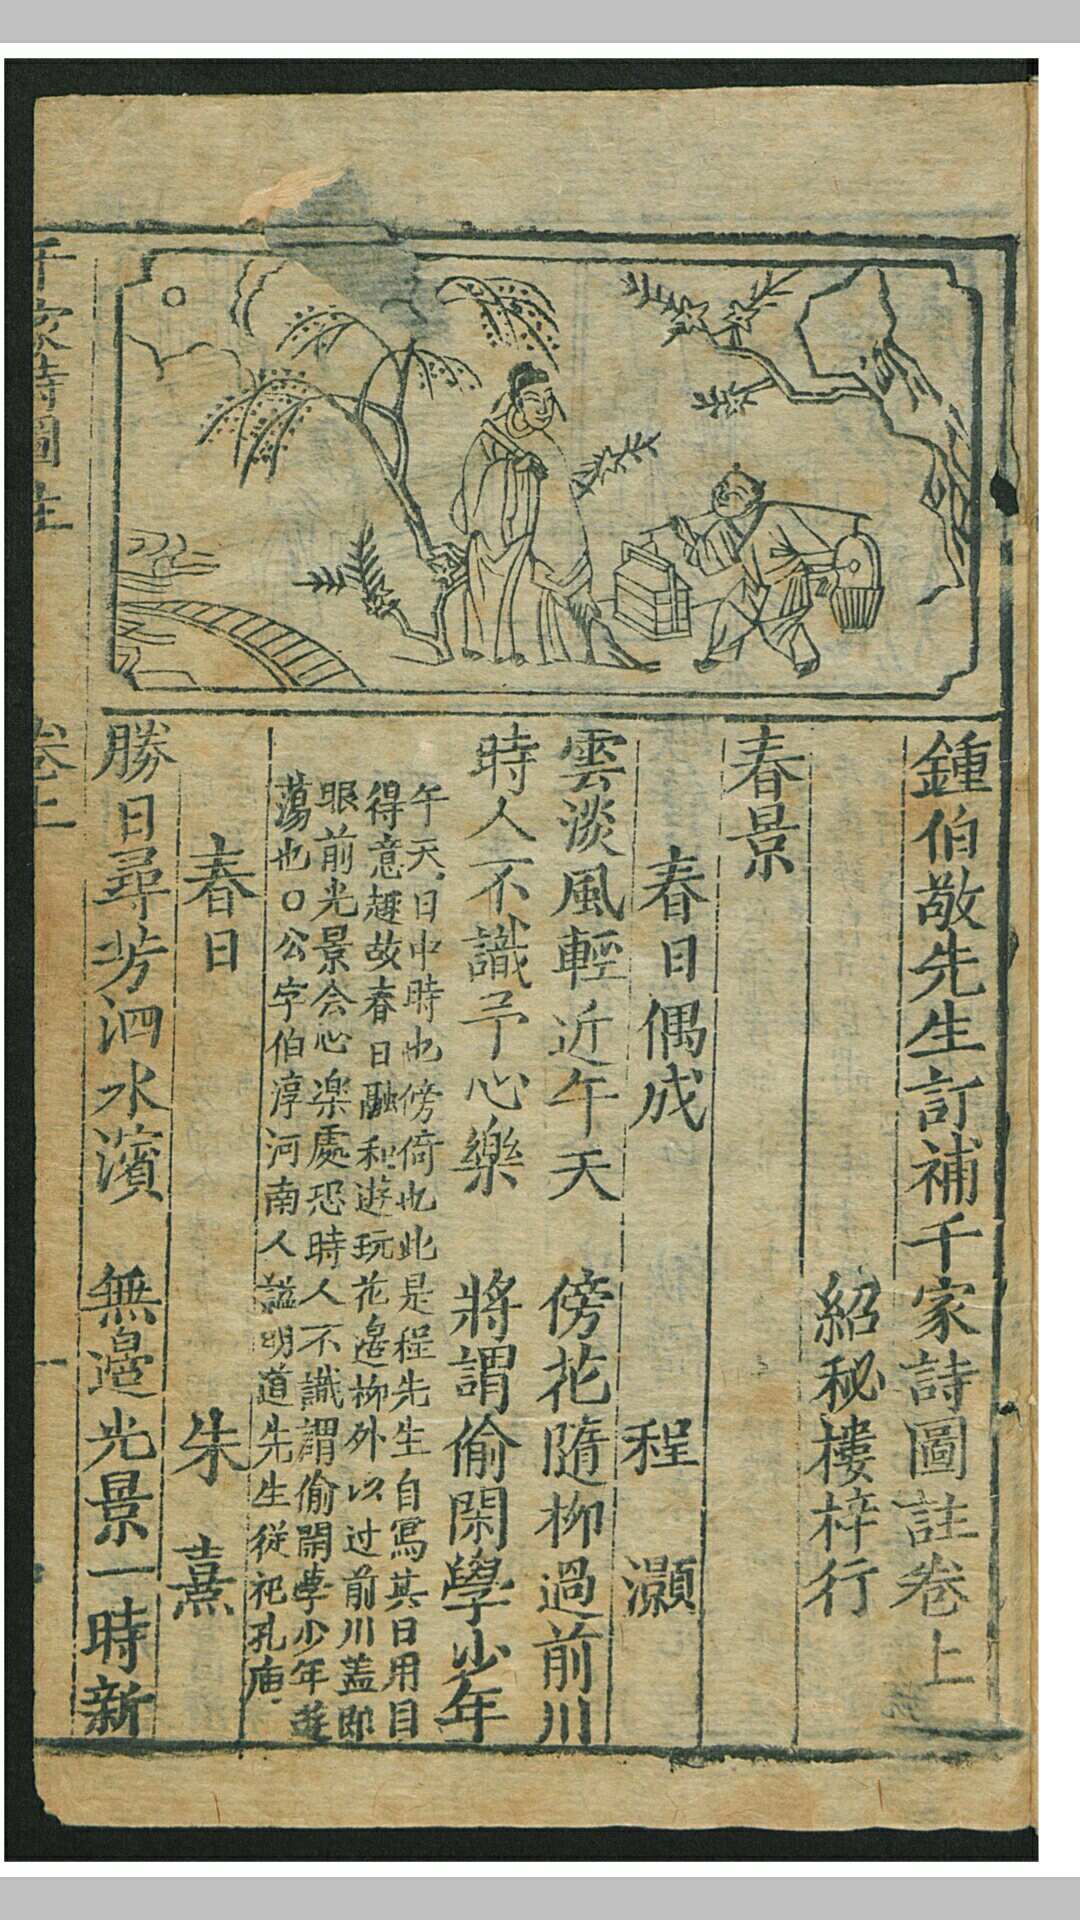 鍾伯敬先生訂補千家詩圖註卷上
紹秘樓梓行
春景
春日偶成 程 灝
雲淡風輕近午天 傍花隨柳過前川
時人不識予心樂 將謂偷閑學少年
午天日中時也傍倚也此是程先生自寫其日用目
得意趣故春日融和遊玩花邉柳外以过前川盖即
眼前光景会心楽處恐時人不識謂偷閑學少年遊
蕩也○公字伯淳河南人謚明道先生從祀孔庙
春日 朱 熹
勝日尋芳泗水濱 無邉光景一時新
千家詩圖註 卷上 一